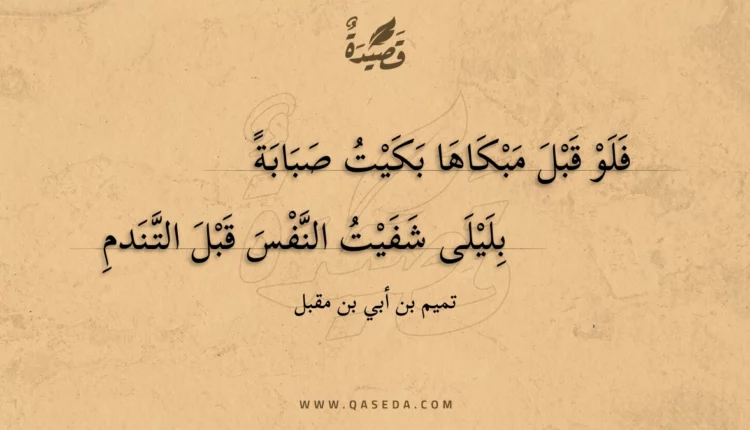 قَصِيدَةٌ
فَلَوْ قَبْلَ مَبْكَاهَا بَكَيْتُ صَبَابَةً
بِلَيْلَى شَفَيْتُ النَّفْسَ قَبْلَ التَّنَدمِ
تميم بن أبي بن مقبل
WWW.QASEDA.COM